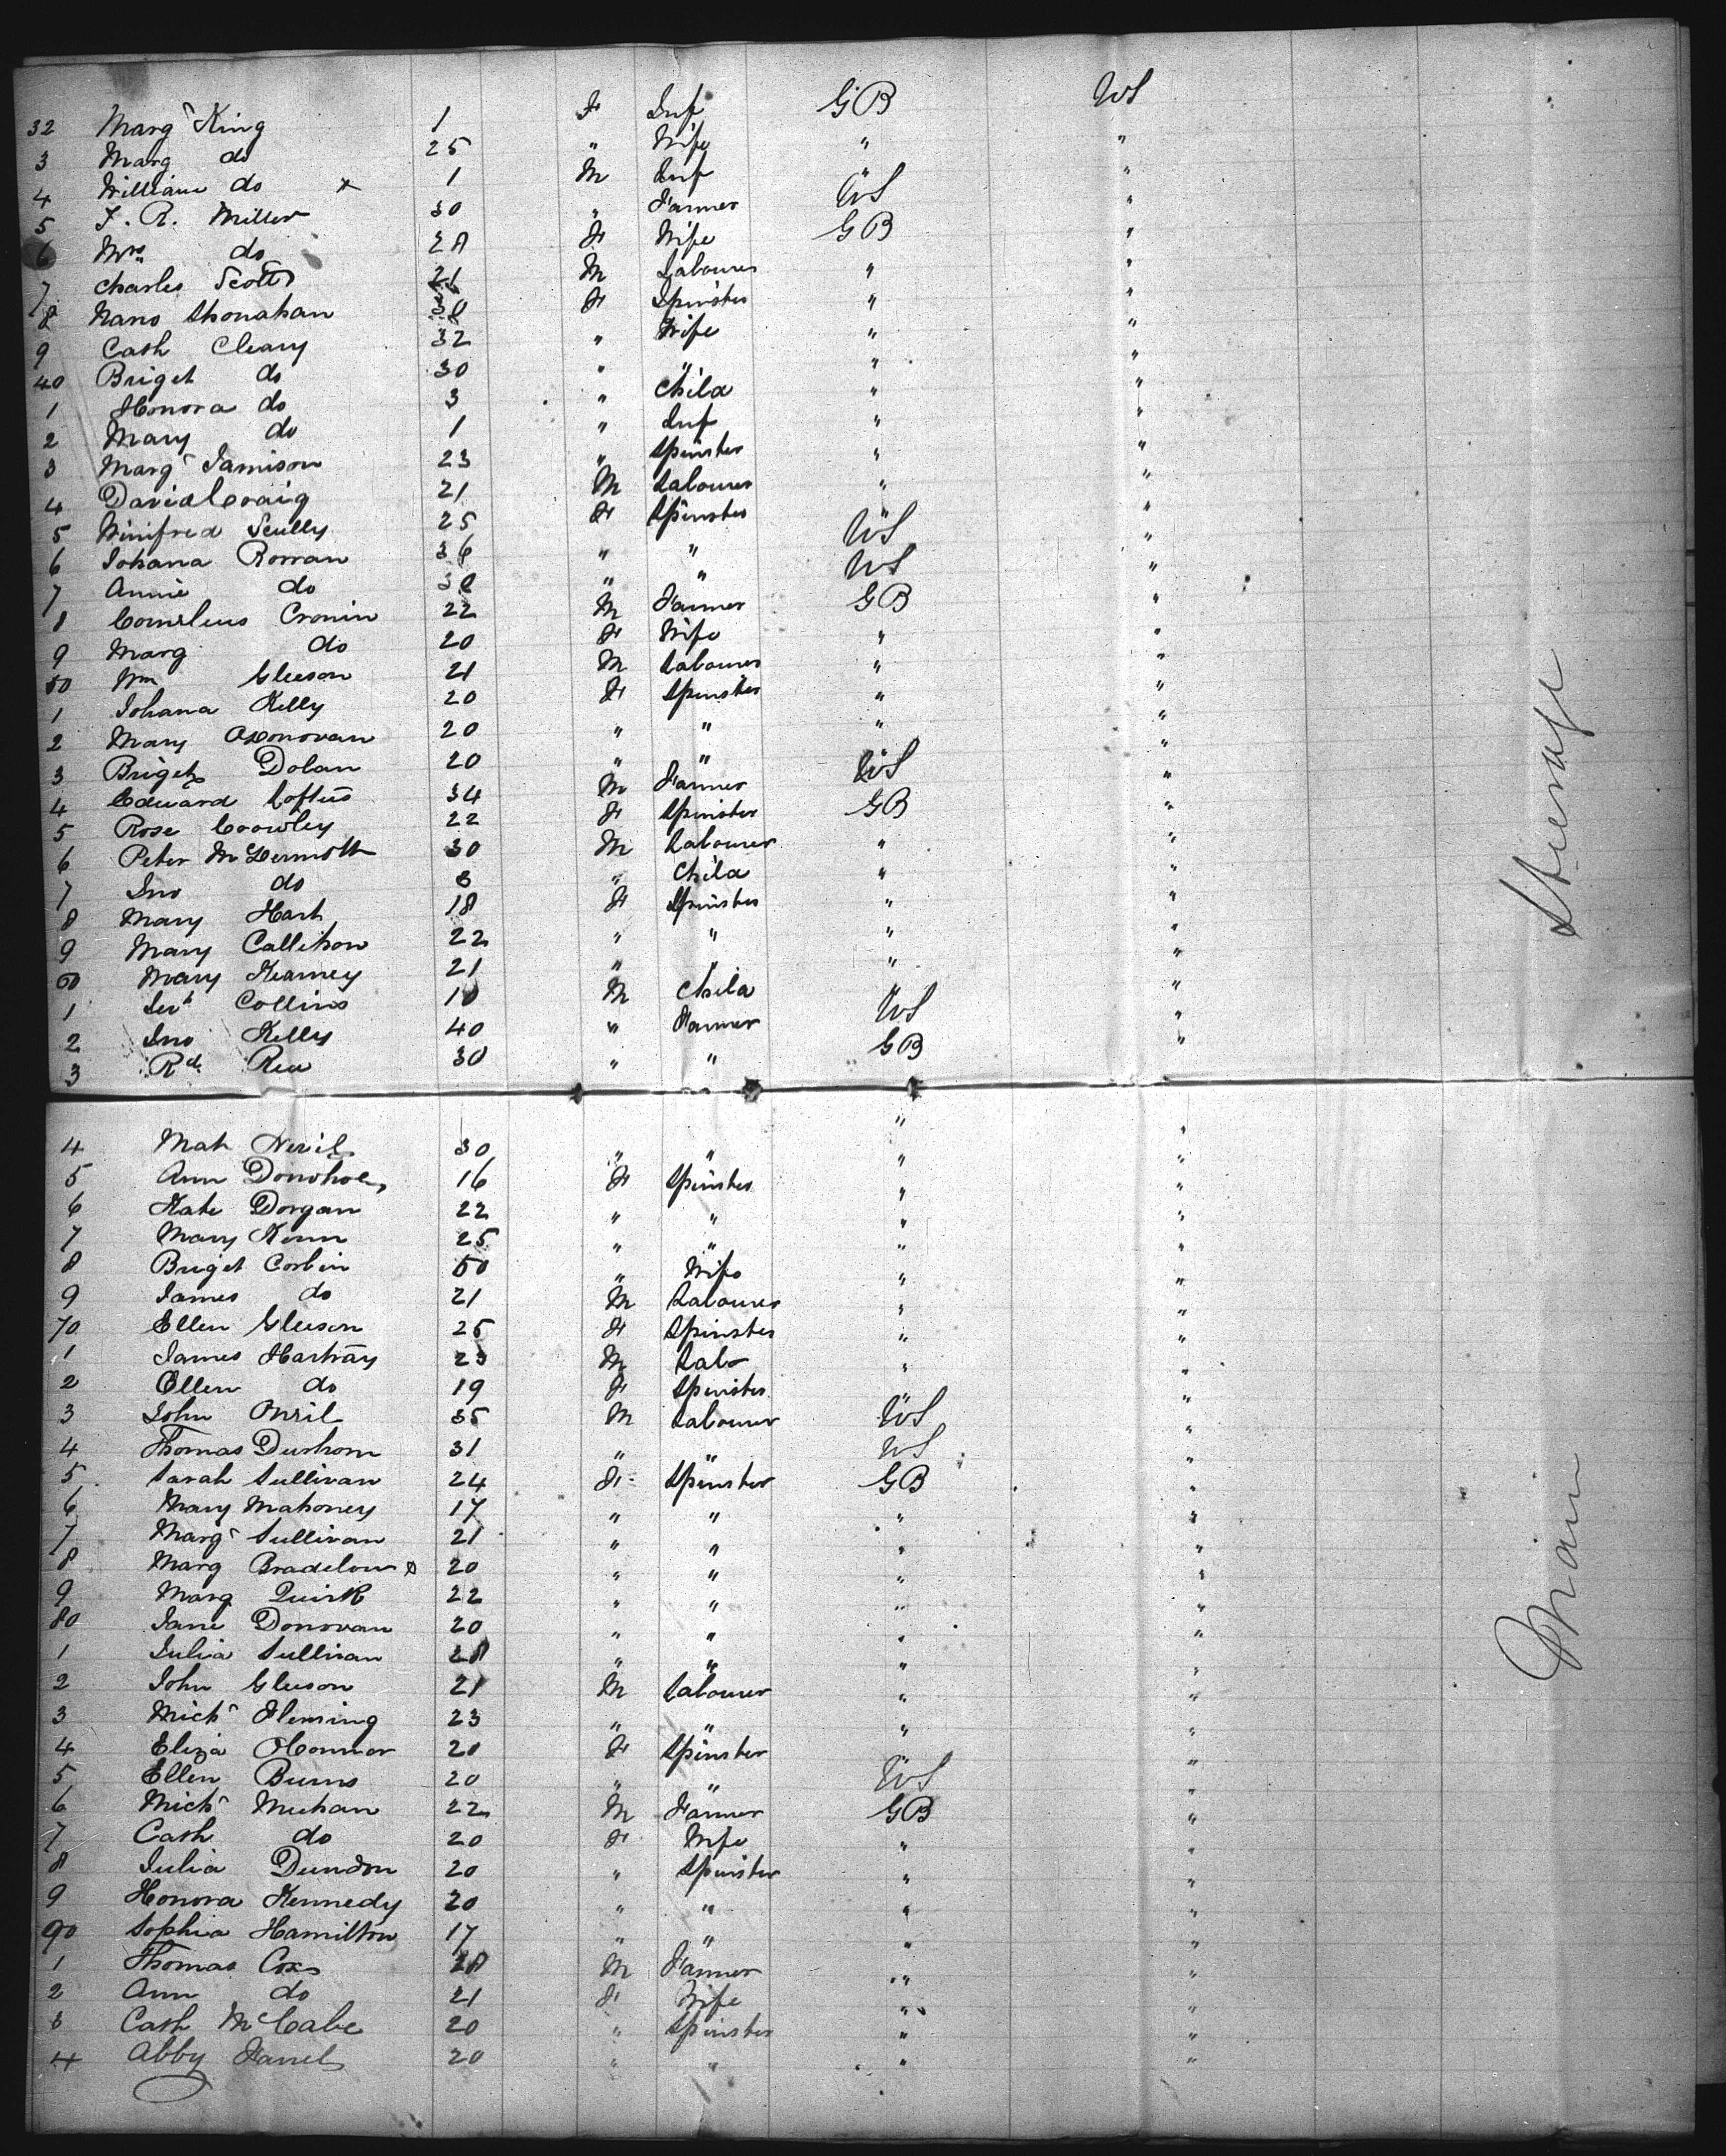 32 Marg^t King 1 F Inf GB US
3 Marg do 25 " Wife " "
4 William do x 1 M Inf " "
5 J. R. Miller 30 " Farmer US "
6 Mrs do 28 F Wife GB "
7 Charles Scott 21 M Labourer " "
8 Nano Shonahan 30 F Spinster " "
9 Cath Cleary 32 " Wife " "
40 Briget do 30 " " " "
1 Honora do 3 " Child " "
2 Mary do 1 " Inf " "
3 Marg^t Jamison 23 " Spinster " "
4 David Craig 21 M Labourer " "
5 Winifred Scully 25 F Spinster " "
6 Johana Ronan 36 " " US "
7 Annie do 38 " " US "
8 Cornelius Cronin 22 M Farmer GB "
9 Marg do 20 F Wife " "
50 Wm Gleeson 21 M Labourer " "
1 Johana Kelly 20 F Spinster " "
2 Mary O'Donovan 20 " " " "
3 Briget Dolan 20 " " " "
4 Edward Loftus 34 M Farmer US "
5 Rose Crowley 22 F Spinster GB "
6 Peter McDermott 30 M Labourer " "
7 Jno do 8 " Child " "
8 Mary Hart 18 F Spinster " "
9 Mary Callihon 22 " " " "
60 Mary Kearney 21 " " " "
1 Collins 10 M Child " "
2 Jno Kelly 40 " Farmer US "
3 Rd Rea 30 " " GB "
4 Mat Neril 30 " " " "
5 Ann Donohoe 16 F Spinster " "
6 Kate Dorgan 22 " " " "
7 Mary Kenn 25 " " " "
8 Briget Corbin 50 " Wife " "
9 James do 21 M Labourer " "
70 Ellen Gleeson 25 F Spinster " "
1 James Hartray 23 M Labr " "
2 Ellen do 19 F Spinster " "
3 John Oneil 35 M Labourer US "
4 Thomas Durhom 31 " " US "
5 Sarah Sullivan 24 F Spinster GB "
6 Mary Mahoney 17 " " " "
7 Marg^t Sullivan 21 " " " "
8 Marg x 20 " " " "
9 Marg Quirk 22 " " " "
80 Jane Donovan 20 " " " "
1 Julia Sullivan 28 " " " "
2 John Gleeson 21 M Labourer " "
3 Mich^l Fleming 23 " " " "
4 Eliza OConnor 20 F Spinster " "
5 Ellen Burns 20 " " US "
6 Mich^l Meehan 22 M Farmer GB "
7 Cath do 20 F Wife " "
8 Julia Dundon 20 " Spinster " "
9 Honora Kennedy 20 " " " "
90 Sophia Hamilton 17 " " " "
1 Thomas Cox 28 M Farmer " "
2 Ann do 21 F Wife " "
3 Cath McCabe 20 " Spinster " "
4 Abby 20 " " " "
Steerage
Main